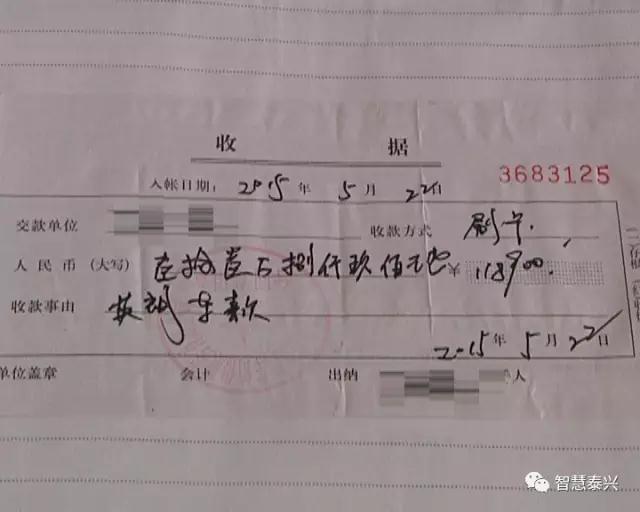 收 据
3683125
入帐日期：2015年 5月 22日
交款单位 收款方式 刷卡
人民币（大写） 壹拾壹万捌仟玖佰元 ¥ 118900
收款事由 车款
2015年 5月 22日
单位盖章 会计 出纳 人
智慧泰兴